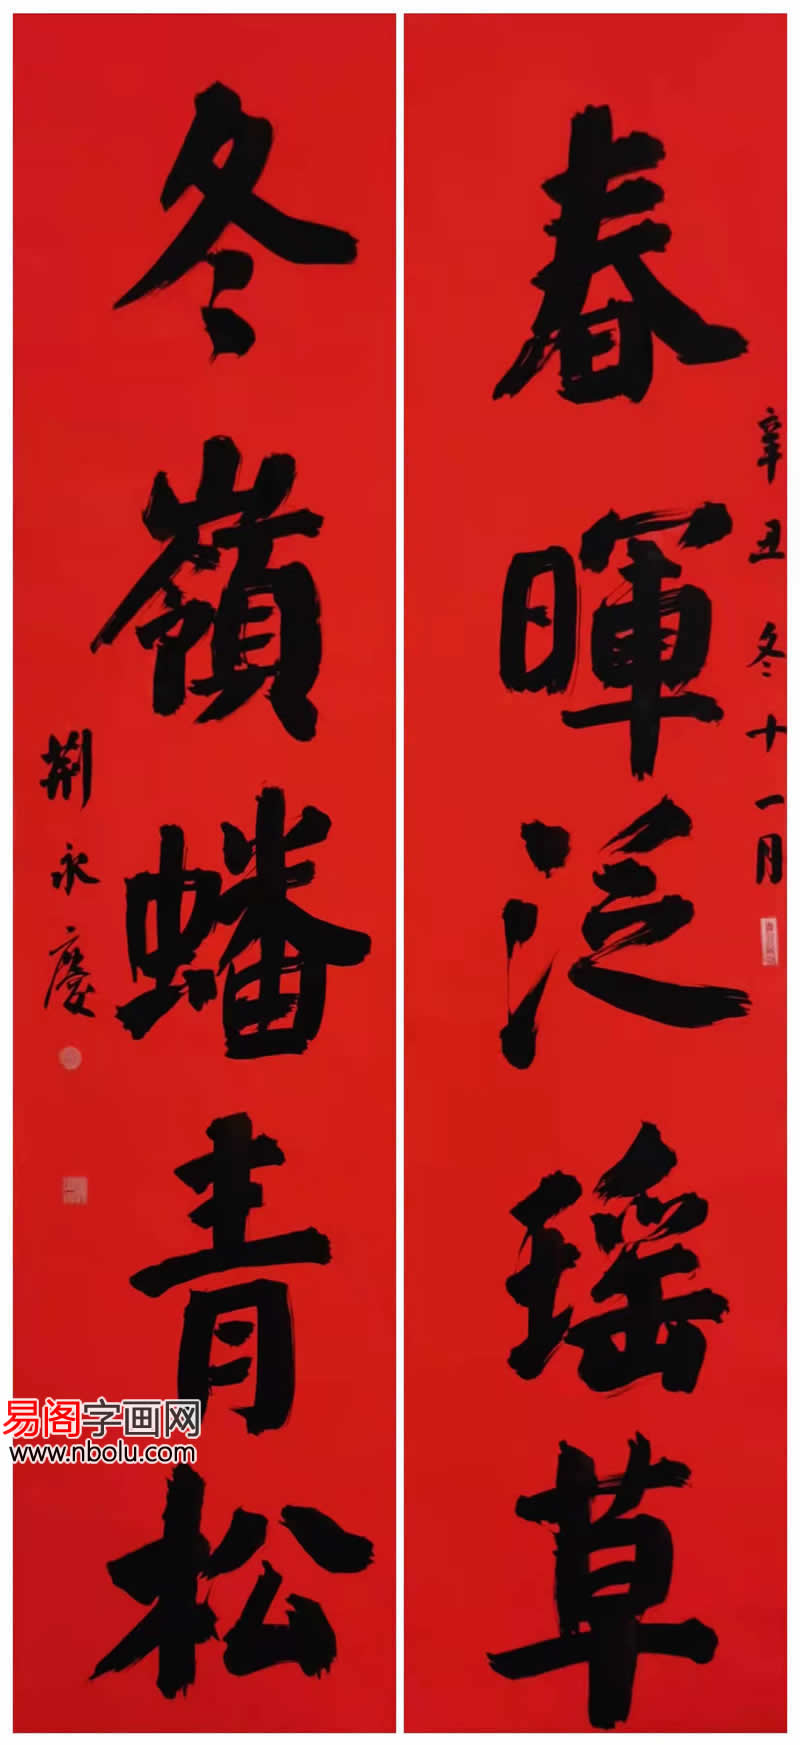 春暉泛瑶草
辛丑冬十一月
冬嶺蟠青松
荆永慶
易阁字画网
www.nbolu.com